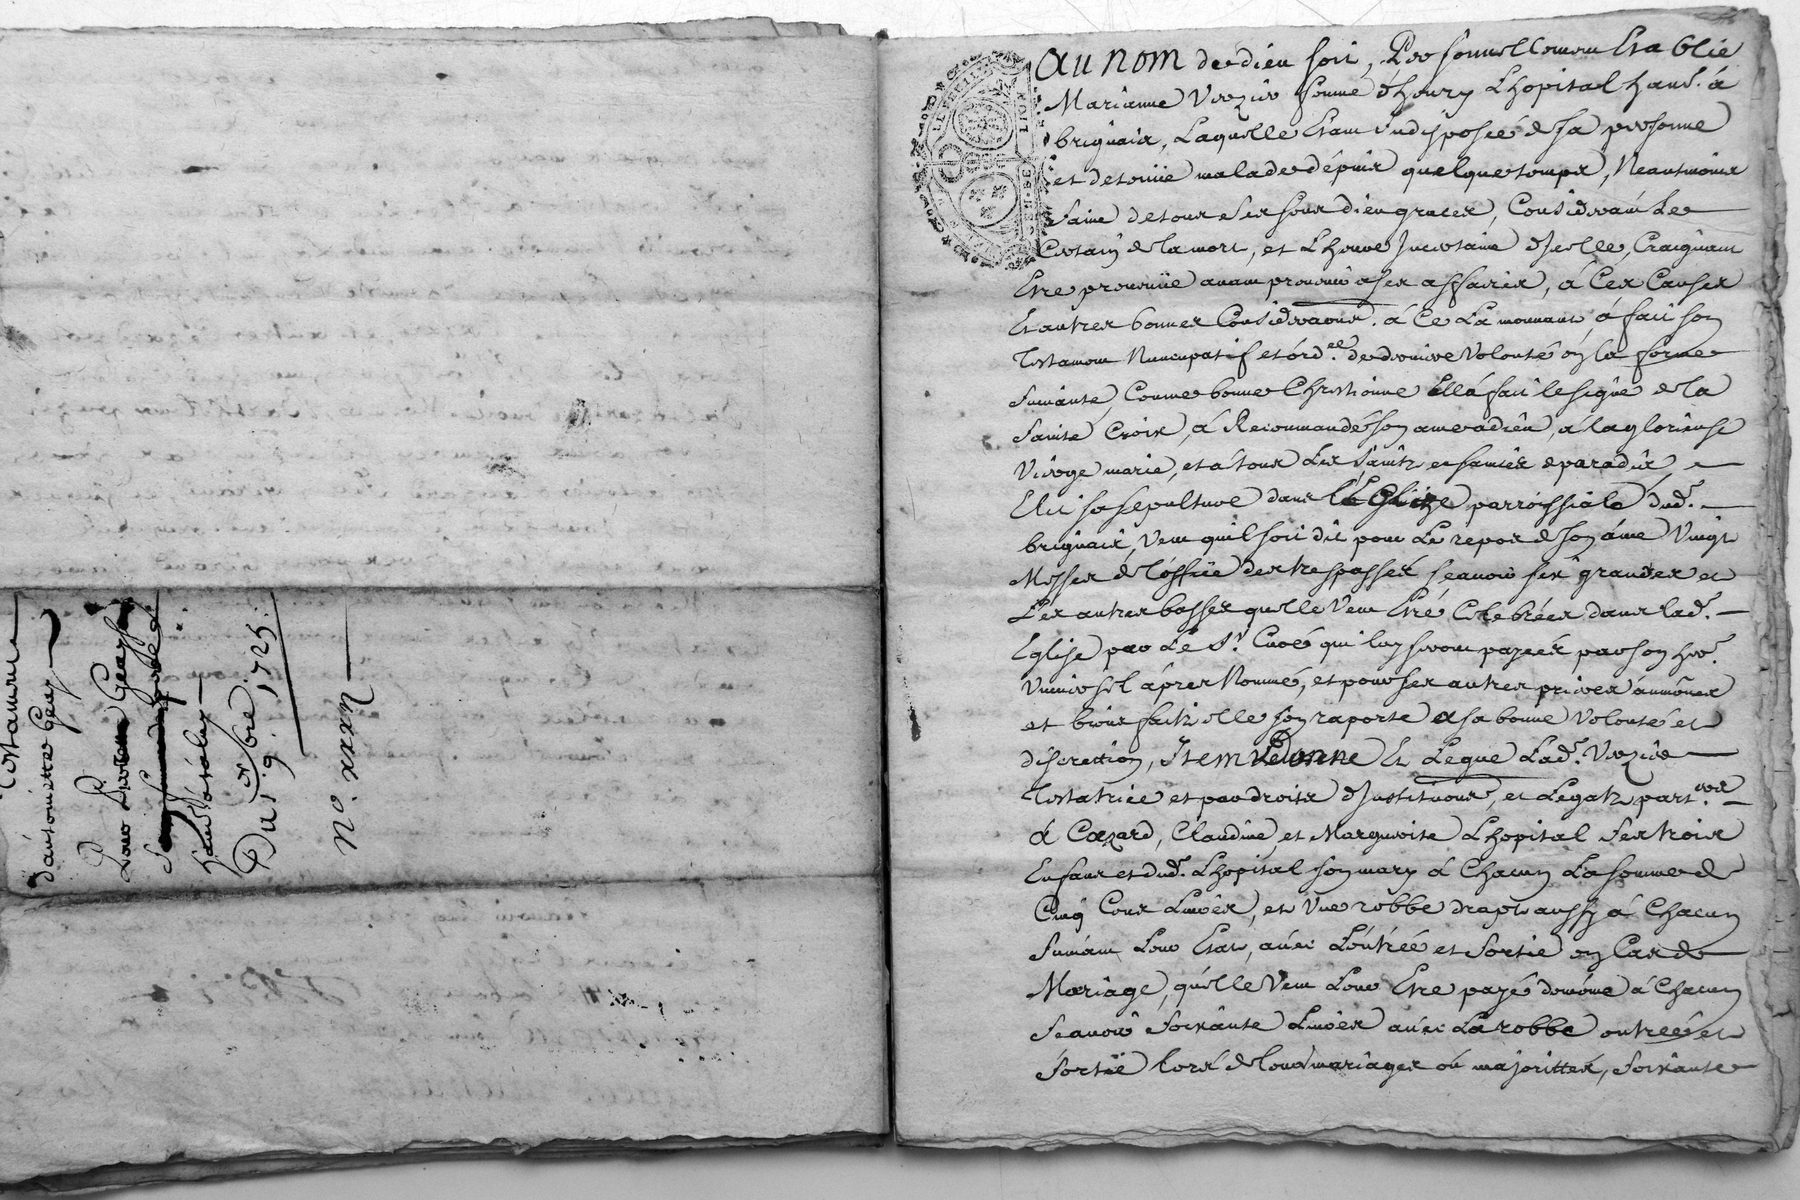 Testament
d'antoinette Geay
Pour
Geay
hant. à
Du 19 9bre. 1725.
N°. xxxx
LYON
Au nom de dieu soit, Personnellement Establie
Marianne Verzier femme d'henry Lhopital hant. à
brignais, Laquelle Etant indisposée de sa personne
et detenüe malade dépuis quelque temps, Neantmoins
saine de tous ses sens dieu graces, Considerant Le
Certain de la mort, et L'heure Incertaine d'Icelle, Craignant
Etre prevenüe avant prouvoir a ses affaires, à Ces Causes
Et autres bonnes Considéraons. à Ce La mouvants, à fait son
Testament Nuncupatif et ord.re de derniere Volonté en la forme
suivante, Comme bonne Chrestienne Ell'á fait le signe de la
sainte Croix, á Recommandé son ame à dieu, á la glorieuse
Vierge marie, et á tous Les saints et saintes de paradis,
Elit sa sepulture dans L'Eglize parroissiale dud.
brignais, Veut qu'il soit dit pour Le repos de son áme Vingt
Messes de l'óffice des trespassés sçavoir six grandes et
Les autres basses qu'elle Veut Etré Celebrées dans lad.
Eglise par Le Sr. Curé qui luy seront payées par son her.
Universel áprés Nommé, et pour ses autres prieres aumônes
et bienfaits elle s'en raporte à sa bonne Volonté et
discretion, Item Donne Et Legue Lad. Verzier
Testatrice et par droits d'Institutions, et Legats part.ers
à Cæzard, Claudine, et Marguerite Lhopital ses trois
Enfans et dud. Lhopital son mary à Chacun La somme de
Cinq Cens Livres, et Une robbe drapt aussy á Chacun
suivant Leur Etat, avec L'éntrée et sortie en Cas de
Mariage, qu'elle Veut Leur Etre payé á Chacun
sçavoir soixante Livres avec La robbe entrée et
sortie lors de leurs mariages ou majorittés, soixante